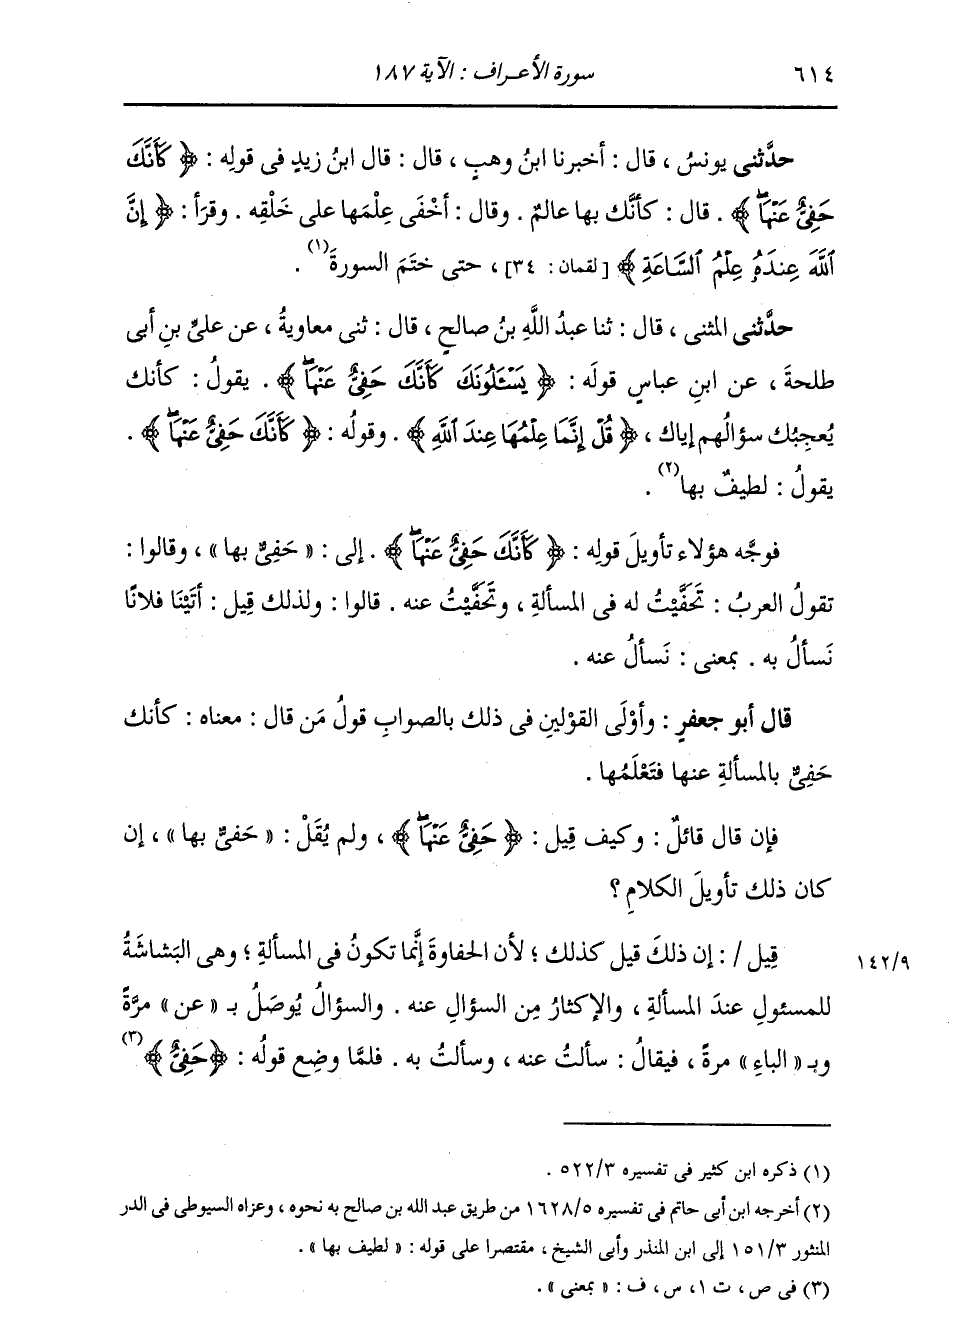 ٦١٤ سورة الأعراف : الآية ١٨٧
حدَّثنى يونسُ ، قال : أخبرنا ابنُ وهبٍ ، قال : قال ابنُ زيدٍ فى قولِه : ﴿ كَأَنَّكَ
حَفِىٌّ عَنْهَاۖ ﴾ . قال : كأنَّك بها عالمٌ . وقال : أخْفَى عِلْمَها على خَلْقِه . وقرَأ : ﴿ إِنَّ
ٱللَّهَ عِندَهُۥ عِلْمُ ٱلسَّاعَةِ ﴾ [ لقمان : ٣٤] ، حتى ختَمَ السورةَ(١) .
حدَّثنى المثنى ، قال : ثنا عبدُ اللَّهِ بنُ صالحٍ ، قال : ثنى معاويةُ ، عن علىِّ بنِ أبى
طلحةَ ، عن ابنِ عباسٍ قولَه : ﴿ يَسْـَٔلُونَكَ كَأَنَّكَ حَفِىٌّ عَنْهَاۖ ﴾ . يقولُ : كأنك
يُعجِبُك سؤالُهم إياك ، ﴿ قُلْ إِنَّمَا عِلْمُهَا عِندَ ٱللَّهِ ﴾ . وقولُه : ﴿ كَأَنَّكَ حَفِىٌّ عَنْهَاۖ ﴾ .
يقولُ : لطيفٌ بها(٢) .
فوجَّه هؤلاء تأويلَ قولِه : ﴿ كَأَنَّكَ حَفِىٌّ عَنْهَاۖ ﴾ . إلى : « حَفِىٌّ بها » ، وقالوا :
تقولُ العربُ : تَحَفَّيْتُ له فى المسألةِ ، وتَحَفَّيْتُ عنه . قالوا : ولذلك قِيل : أتَيْنَا فلانًا
نَسألُ به . بمعنى : نَسألُ عنه .
قال أبو جعفرٍ : وأوْلَى القوْلينِ فى ذلك بالصوابِ قولُ مَن قال : معناه : كأنك
حَفِىٌّ بالمسألةِ عنها فتَعْلَمُها .
فإن قال قائلٌ : وكيف قِيل : ﴿ حَفِىٌّ عَنْهَاۖ ﴾ ، ولم يُقَلْ : « حَفىٌّ بها » ، إن
كان ذلك تأويلَ الكلامِ ؟
قِيل / : إن ذلكَ قيل كذلك ؛ لأن الحفاوةَ إنَّما تكونُ فى المسألةِ ؛ وهى البَشاشَةُ ١٤٢/٩
للمسئولِ عندَ المسألةِ ، والإكثارُ مِن السؤالِ عنه . والسؤالُ يُوصَلُ بـ « عن » مرَّةً
وبـ « الباءِ » مرةً ، فيقالُ : سألتُ عنه ، وسألتُ به . فلمَّا وضِع قولُه : ﴿حَفِىٌّ ﴾(٣)
(١) ذكره ابن كثير فى تفسيره ٥٢٢/٣ .
(٢) أخرجه ابن أبى حاتم فى تفسيره ١٦٢٨/٥ من طريق عبد الله بن صالح به نحوه ، وعزاه السيوطى فى الدر
المنثور ١٥١/٣ إلى ابن المنذر وأبى الشيخ ، مقتصرا على قوله : « لطيف بها » .
(٣) فى ص ، ت ١، س ، ف : « بمعنى » .